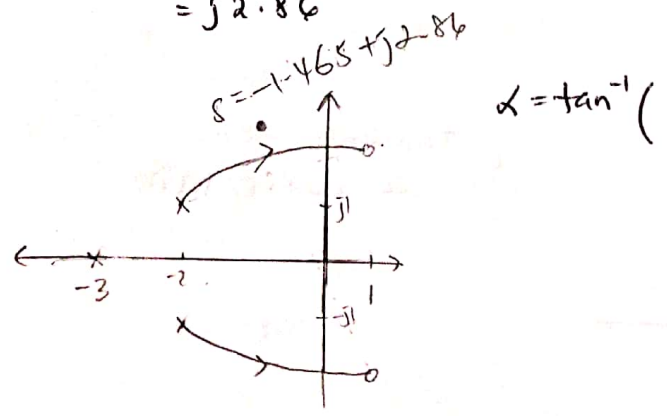 = j2.86
s = -1.465 + j2.86
α = tan⁻¹(
j1
-3
-2
1
-j1